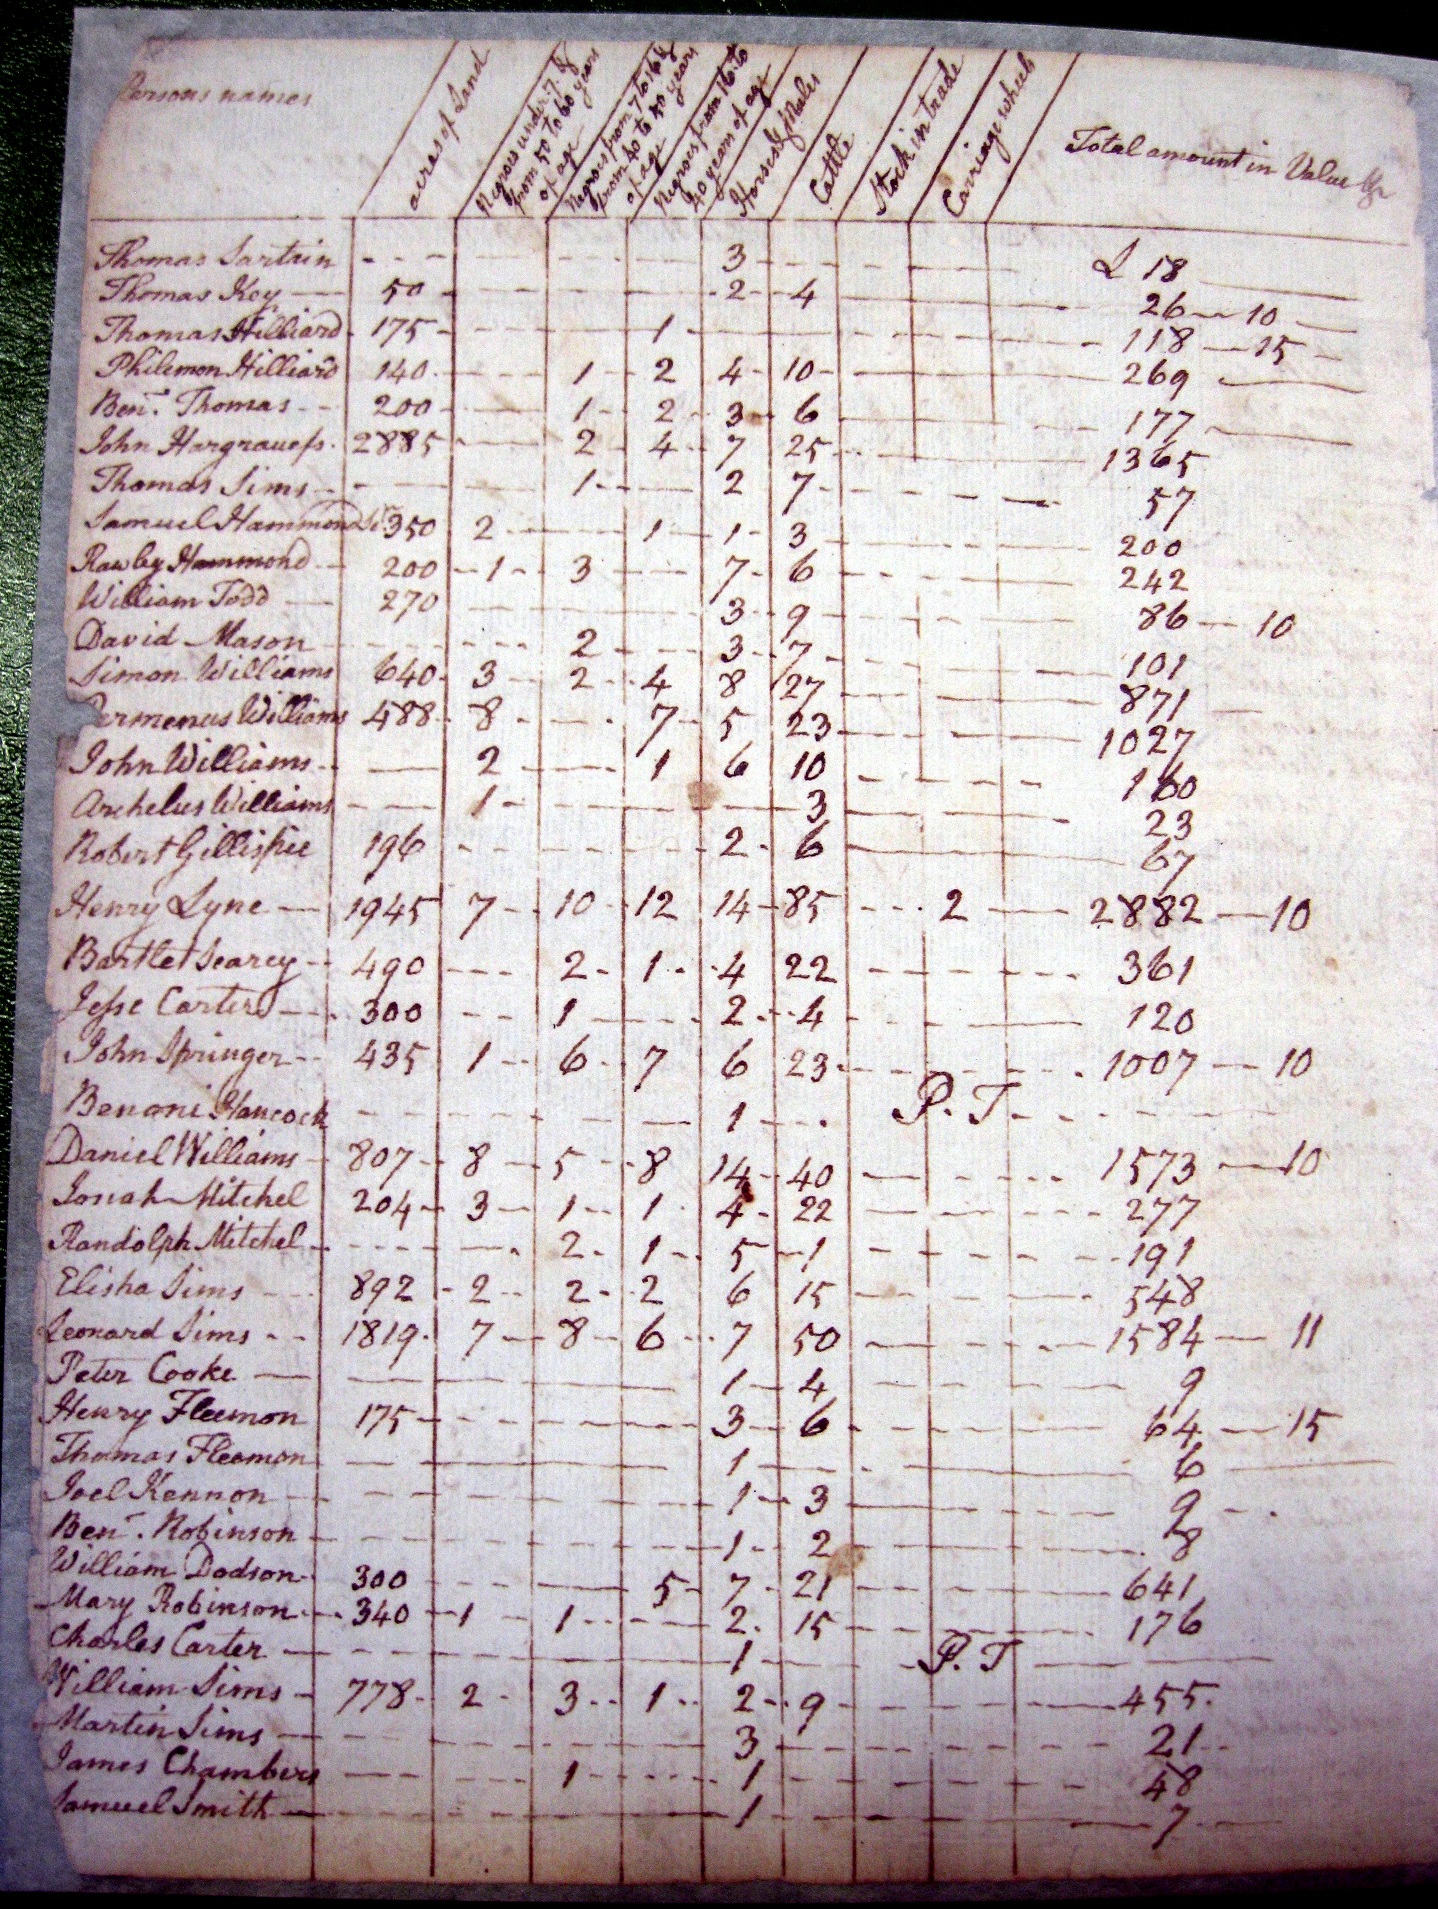 Persons names
acres of Land
Negroes under 7 &
from 50 to 60 years
of age
Negroes from 7 to 16 &
from 40 to 50 years
of age
Negroes from 16 to
40 years of age
Horses & Mules
Cattle
Stock in trade
Carriage wheels
Total amount in Value &c
Thomas Sartain 3 £ 18
Thomas Key 50 2 4 26 10
Thomas Hilliard 175 1 118 15
Philemon Hilliard 140 1 2 4 10 269
Ben. Thomas 200 1 2 3 6 177
John Hargraves 2885 2 4 7 25 1365
Thomas Sims 1 2 7 57
Samuel Hammond Sr 350 2 1 1 3 200
Rawley Hammond 200 1 3 7 6 242
William Todd 270 3 9 86 10
David Mason 2 3 7 101
Simon Williams 640 3 2 4 8 27 871
Permenus Williams 488 8 7 5 23 1027
John Williams 2 1 6 10 160
Archelus Williams 1 3 23
Robert Gillispie 196 2 6 67
Henry Lyne 1945 7 10 12 14 85 2 2882 10
Bartlet Searcy 490 2 1 4 22 361
Jesse Carter 300 1 2 4 120
John Springer 435 1 6 7 6 23 1007 10
Benoni Hancock 1 P. T
Daniel Williams 807 8 5 8 14 40 1573 10
Josiah Mitchel 204 3 1 1 4 22 277
Randolph Mitchel 2 1 5 1 191
Elisha Sims 892 2 2 2 6 15 548
Leonard Sims 1819 7 8 6 7 50 1584 11
Peter Cooke 1 4 9
Henry Fleemon 175 3 6 64 15
Thomas Fleemon 1 6
Joel Kennon 1 3 9
Ben. Robinson 1 2 8
William Dodson 300 5 7 21 641
Mary Robinson 340 1 1 2 15 176
Charles Carter 1 P. T
William Sims 778 2 3 1 2 9 455
Martin Sims 3 21
James Chambers 1 1 48
Samuel Smith 1 7